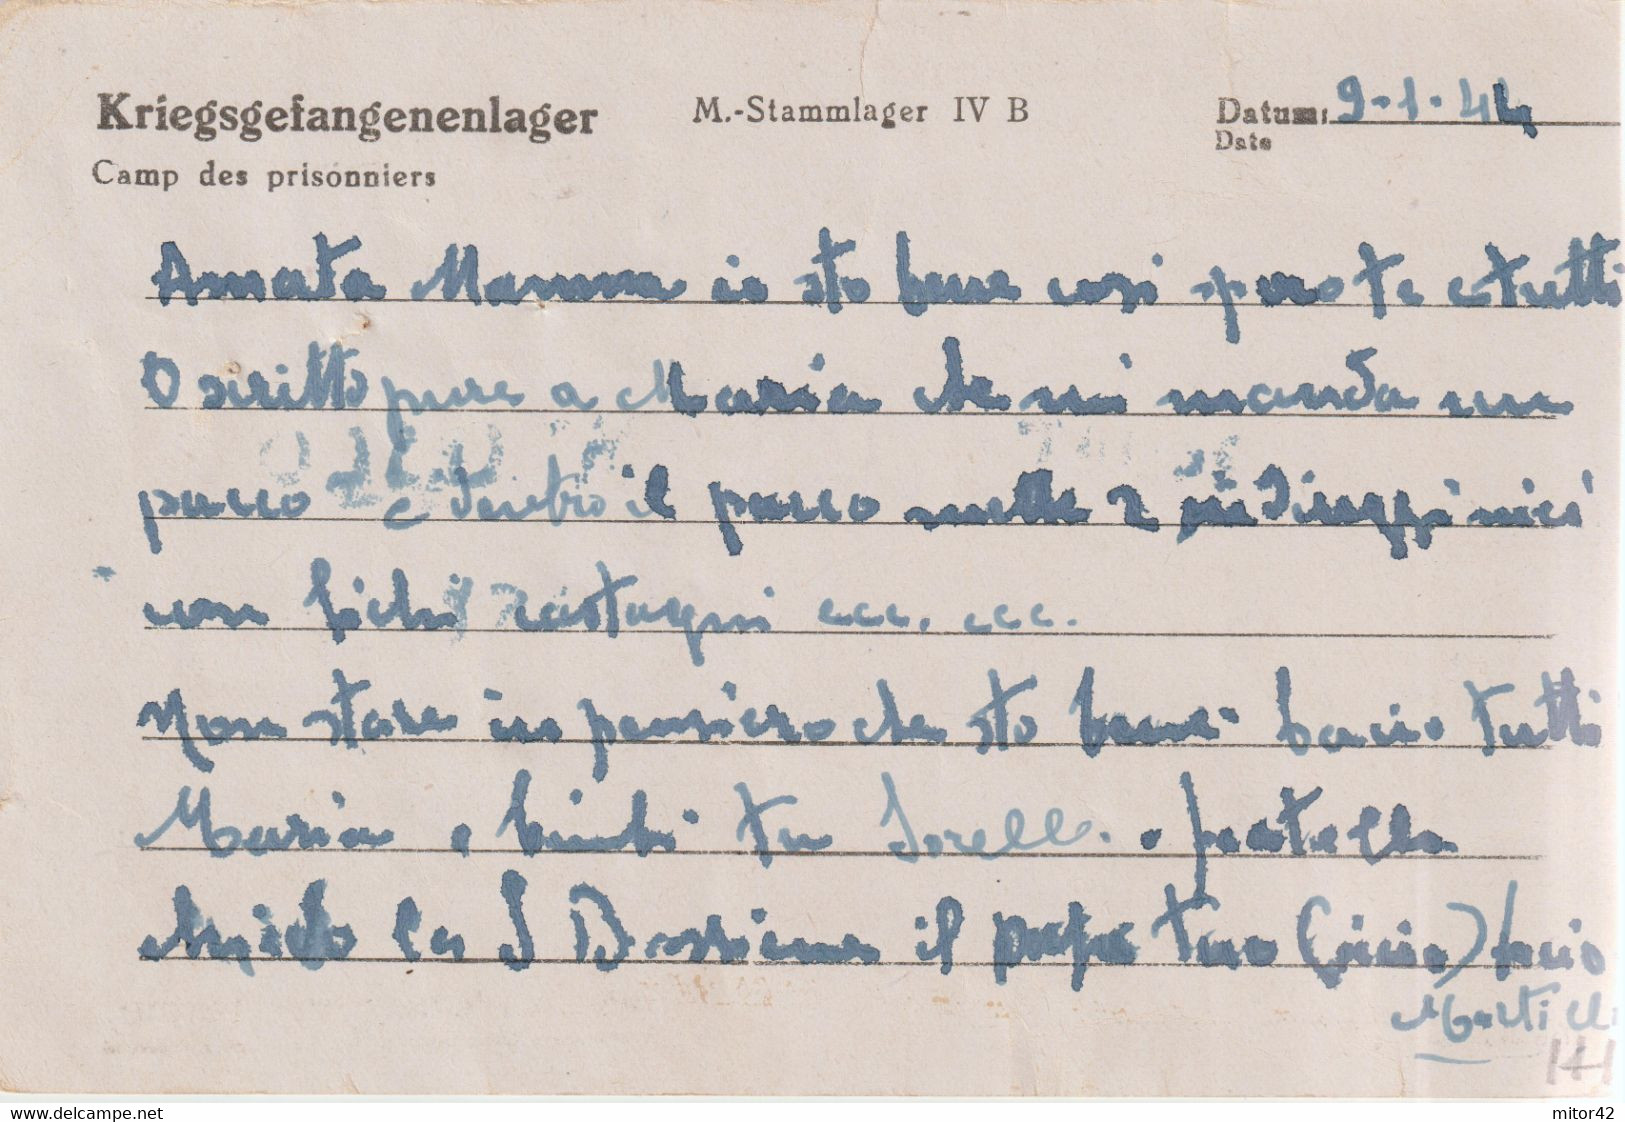 Kriegsgefangenenlager M.-Stammlager IV B Datum: 9-1-44
Camp des prisonniers Date
Amata Mamma io sto bene cosi spero te e tutti
O scritto pure a Maria che mi manda un
pacco e dentro il pacco mette 2 indirizzi miei
con fichi castagni ecc. ecc.
Non stare in pensiero che sto bene. bacio tutti
Maria e bimbi tu sorelle e fratello
la S il papa tuo (ciccio) bacio
141
mitor42